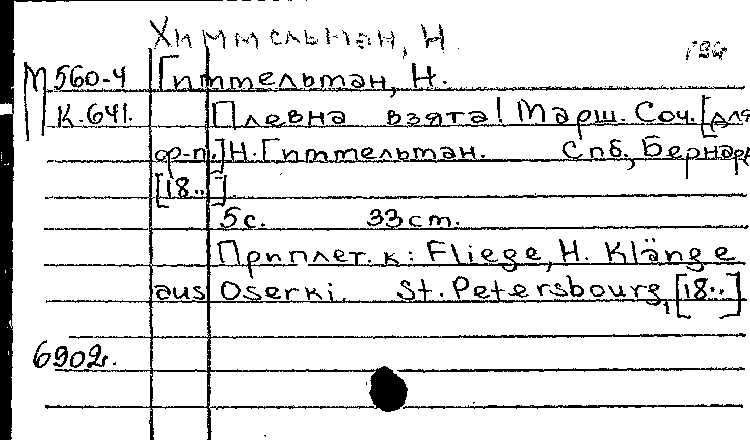 Химмельман, Н.
М 560-4 Гиммельман, Н.
К.641. Плевна взята! Марш. Соч. [для
ф-п.] Н. Гиммельман. Спб., Бернард
[18..]
5 с. 33 cm.
Приплет. к: Fliege, H. Klänge
aus Oserki. St. Petersbourg, [18..]
6902г.